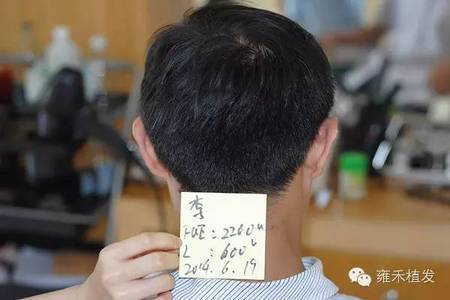 李
FUE:2200u
L:600u
2014.6.19
雍禾植发